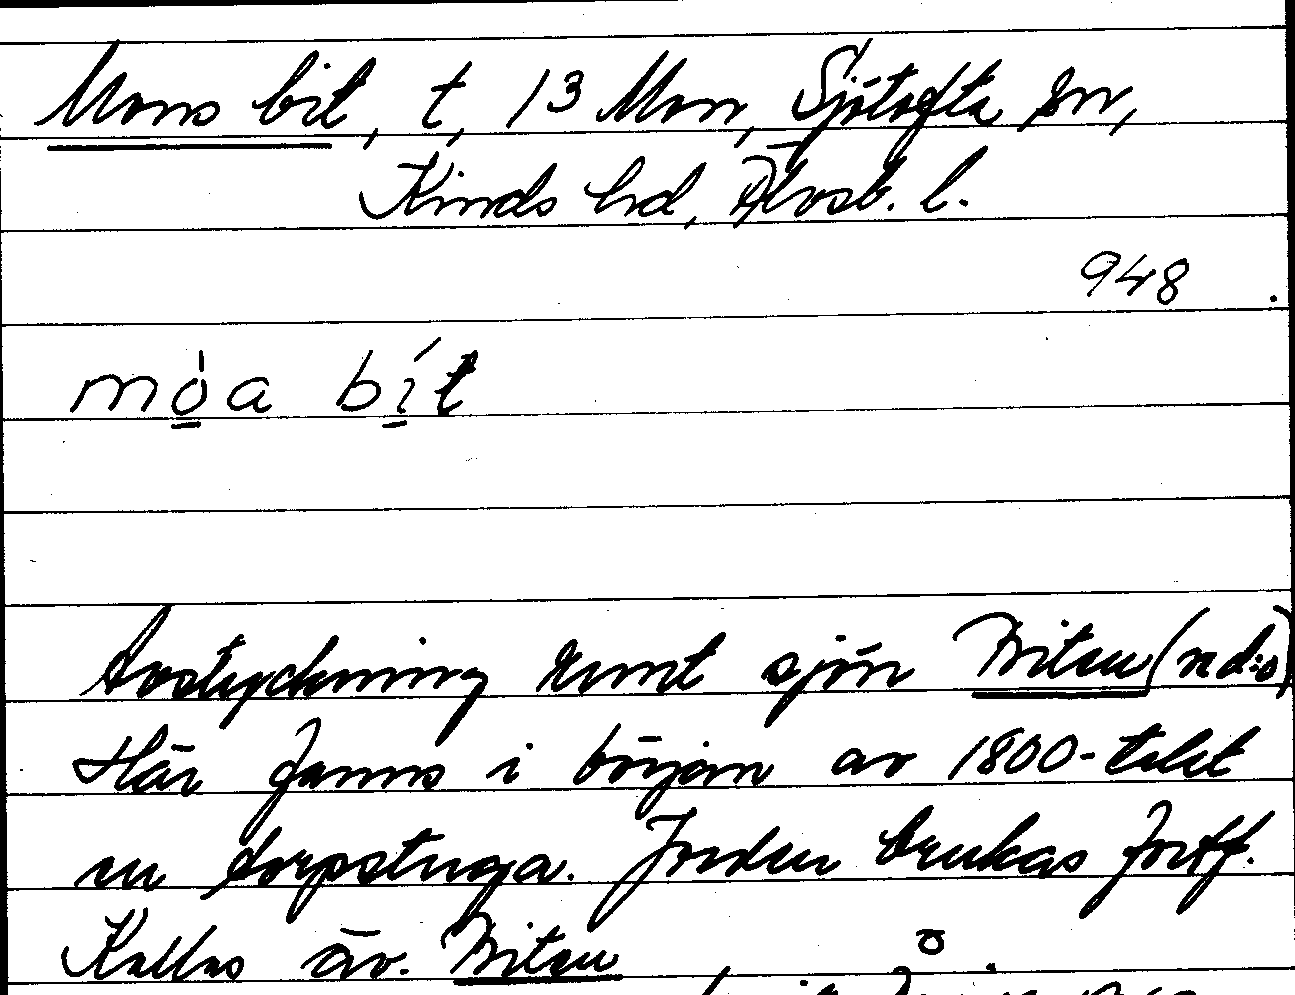 Mons bit, t, 13 Mon, Sjötofta sn,
Kinds hd, Älvsb. l.
948
mo̠̍a bí̠t
Avstyckning runt sjön Biten (nd:o)
Här fanns i början av 1800-talet
en torpstuga. Jorden brukas fortf.
Kallas äv. Biten